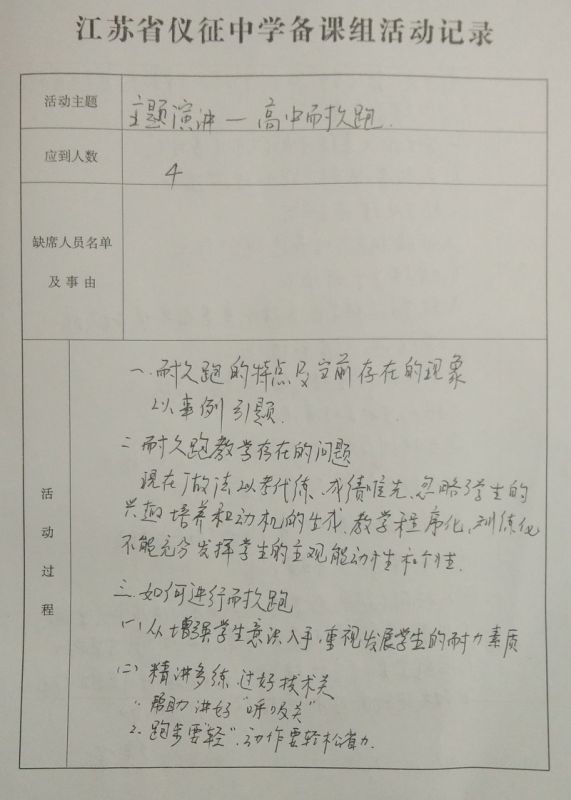 江苏省仪征中学备课组活动记录
活动主题
主题演讲—高中耐久跑.
应到人数
4
缺席人员名单
及事由
活动过程
一.耐久跑的特点及当前存在的现象
以事例引题.
二.耐久跑教学存在的问题
现在做法以考代练、成绩唯先、忽略了学生的
兴趣培养和动机的生成.教学程序化,训练化
不能充分发挥学生的主观能动性和个性.
三.如何进行耐久跑
(一)从增强学生意识入手,重视发展学生的耐力素质
(二)精讲多练 过好技术关
1.帮助讲好“呼吸关”
2.跑步要“轻”.动作要轻松省力.